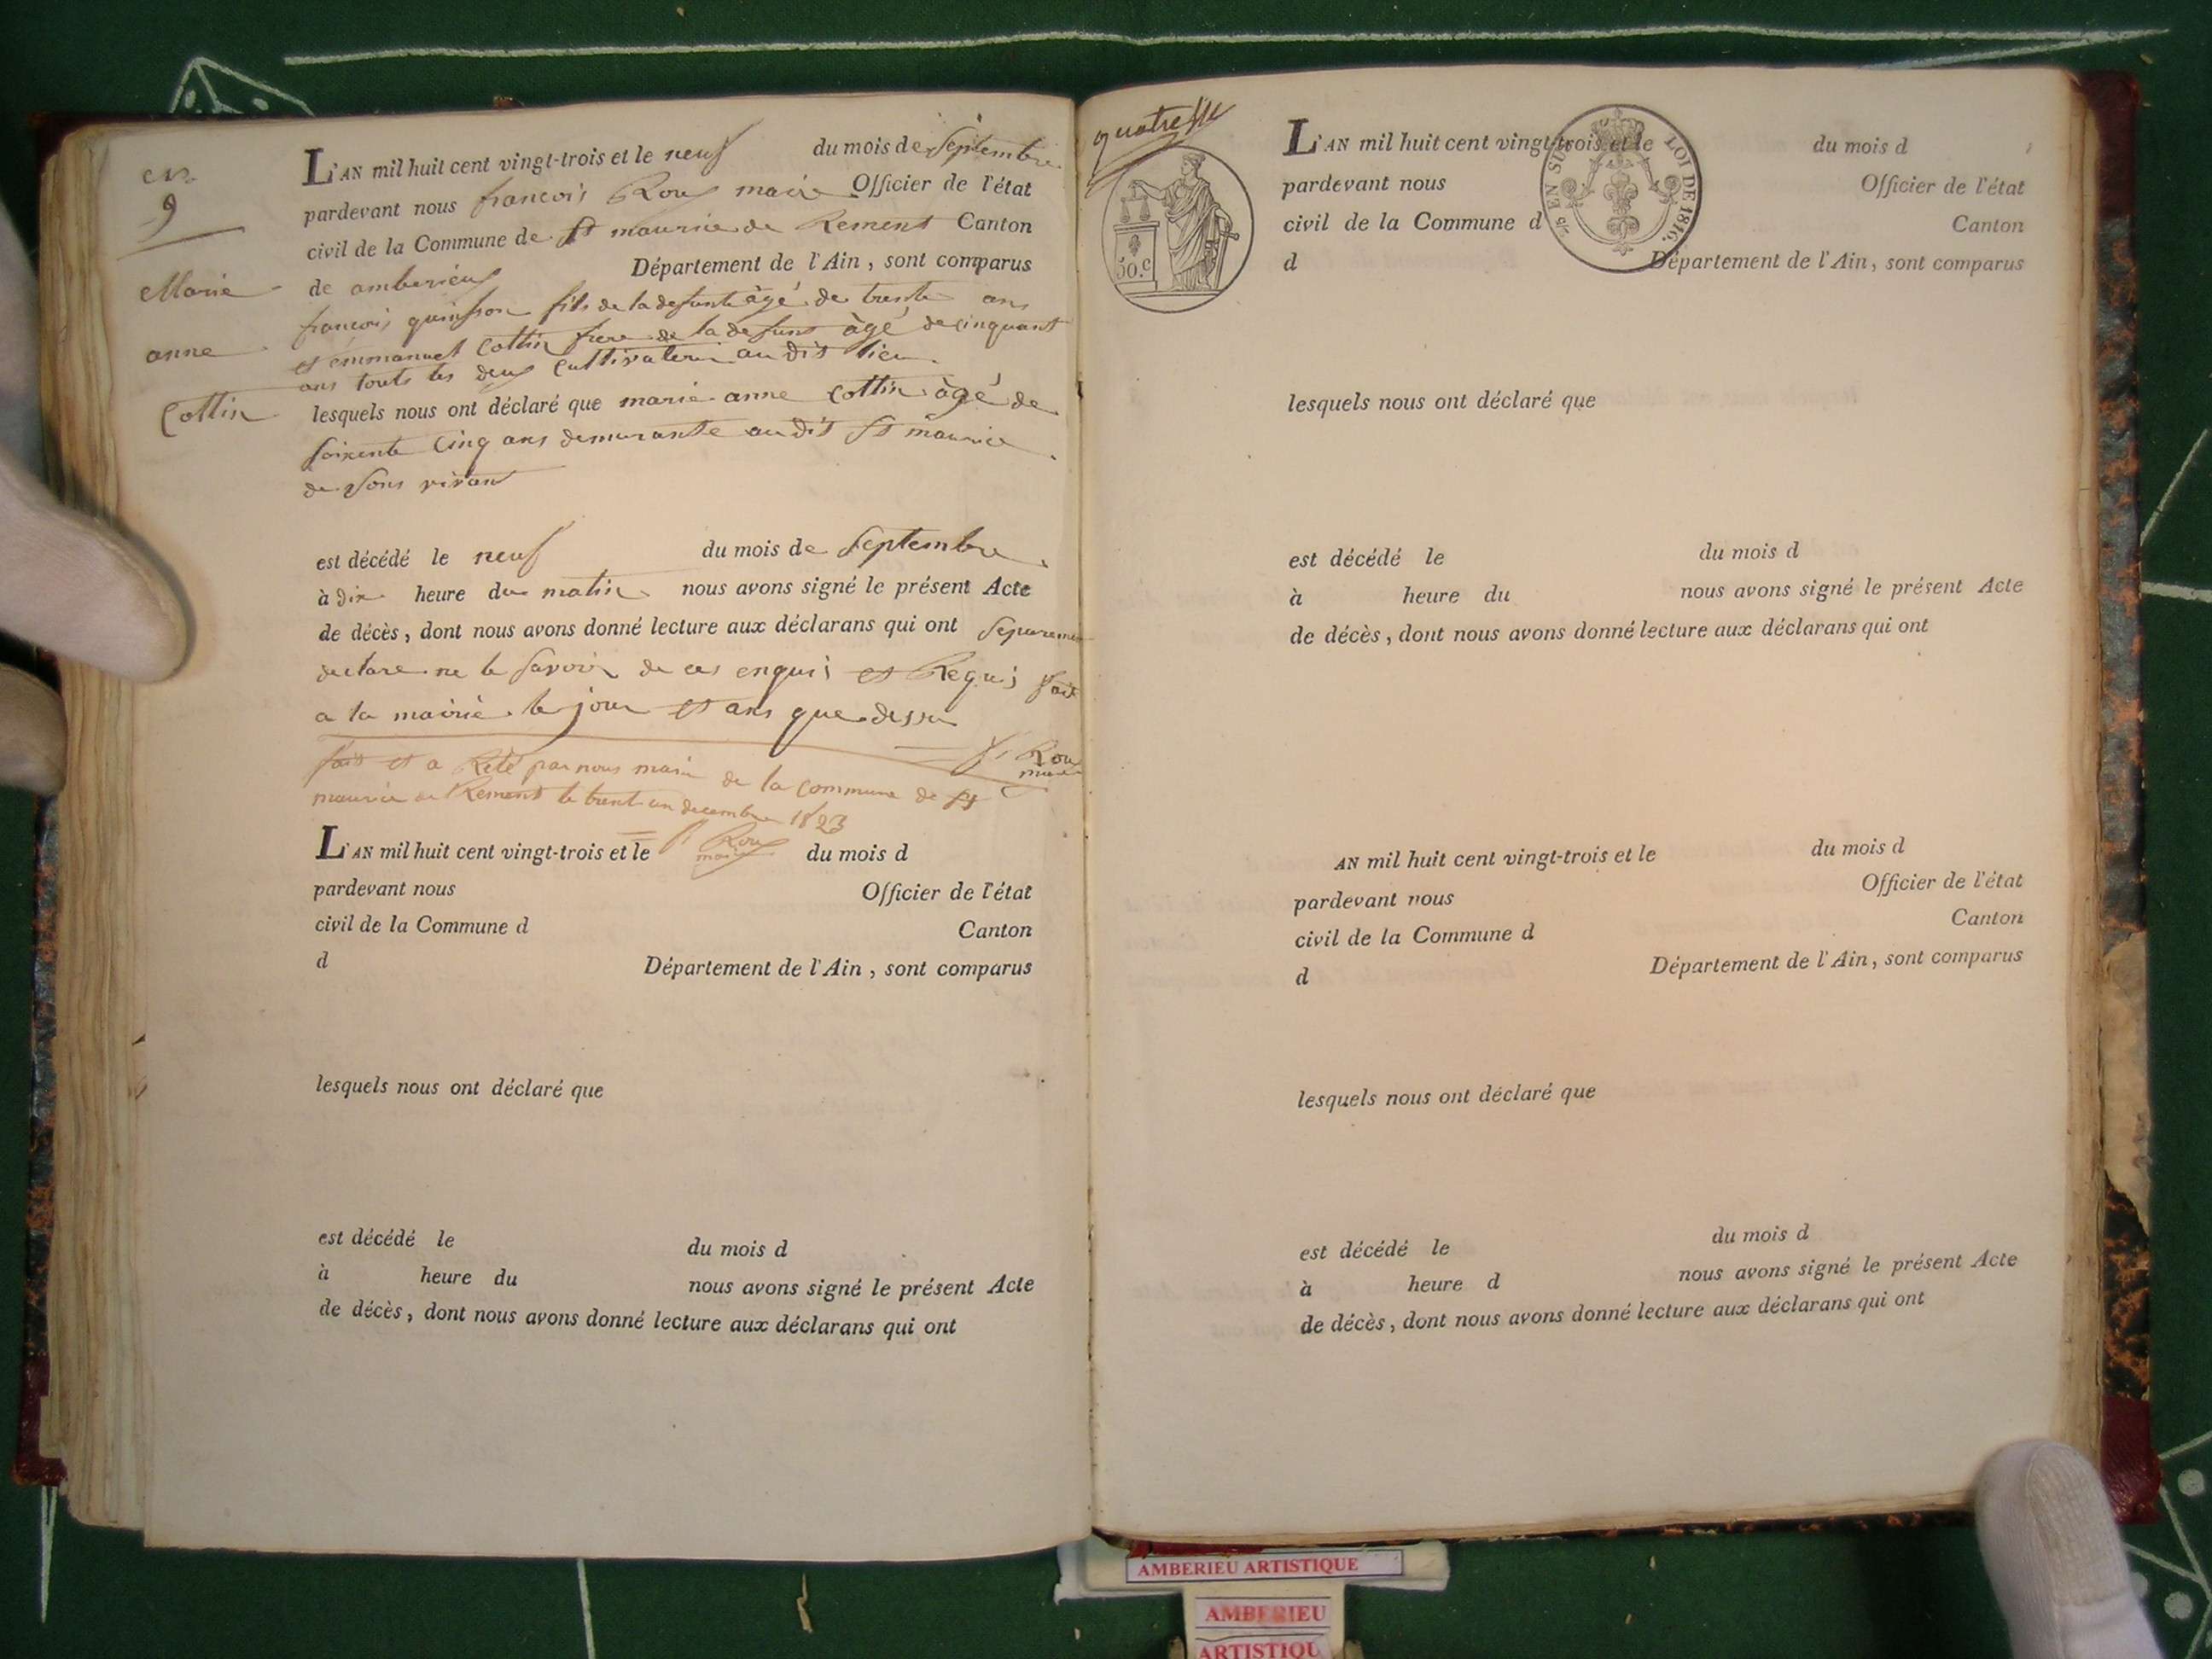 N.
9
Marie
anne
Cottin
L'AN mil huit cent vingt-trois et le neuf du mois de Septembre
pardevant nous francois Roux maire Officier de l'état
civil de la Commune de St maurice de Remens Canton
de amberieux Département de l'Ain, sont comparus
francois quinson fils de la defunte âgé de trente ans
et emmanuel Cottin frere de la defunt âgé de cinquant
ans touts les deux Cultivateur au dit lieu
lesquels nous ont déclaré que marie anne Cottin âgé de
soixente Cinq ans demurante au dit St maurice
de Sons vivant
est décédé le neuf du mois de Septembre
à dix heure du matin nous avons signé le présent Acte
de décès, dont nous avons donné lecture aux déclarans qui ont Separement
declare ne le Savoir de ces enquis et Requis fait
a la mairie le jour et ans que dessu
f. Roux
maire
fait et a Reté par nous maire de la Commune de St
maurice de Remens le trent un decembre 1823
f. Roux
maire
L'AN mil huit cent vingt-trois et le du mois d
pardevant nous Officier de l'état
civil de la Commune d Canton
d Département de l'Ain, sont comparus
lesquels nous ont déclaré que
est décédé le du mois d
à heure du nous avons signé le présent Acte
de décès, dont nous avons donné lecture aux déclarans qui ont
50.c
EN SUS
LOI DE 1816.
L'AN mil huit cent vingt-trois et le du mois d
pardevant nous Officier de l'état
civil de la Commune d Canton
d Département de l'Ain, sont comparus
lesquels nous ont déclaré que
est décédé le du mois d
à heure du nous avons signé le présent Acte
de décès, dont nous avons donné lecture aux déclarans qui ont
AN mil huit cent vingt-trois et le du mois d
pardevant nous Officier de l'état
civil de la Commune d Canton
d Département de l'Ain, sont comparus
lesquels nous ont déclaré que
est décédé le du mois d
à heure d nous avons signé le présent Acte
de décès, dont nous avons donné lecture aux déclarans qui ont
AMBERIEU ARTISTIQUE
AMBERIEU
ARTISTIQU